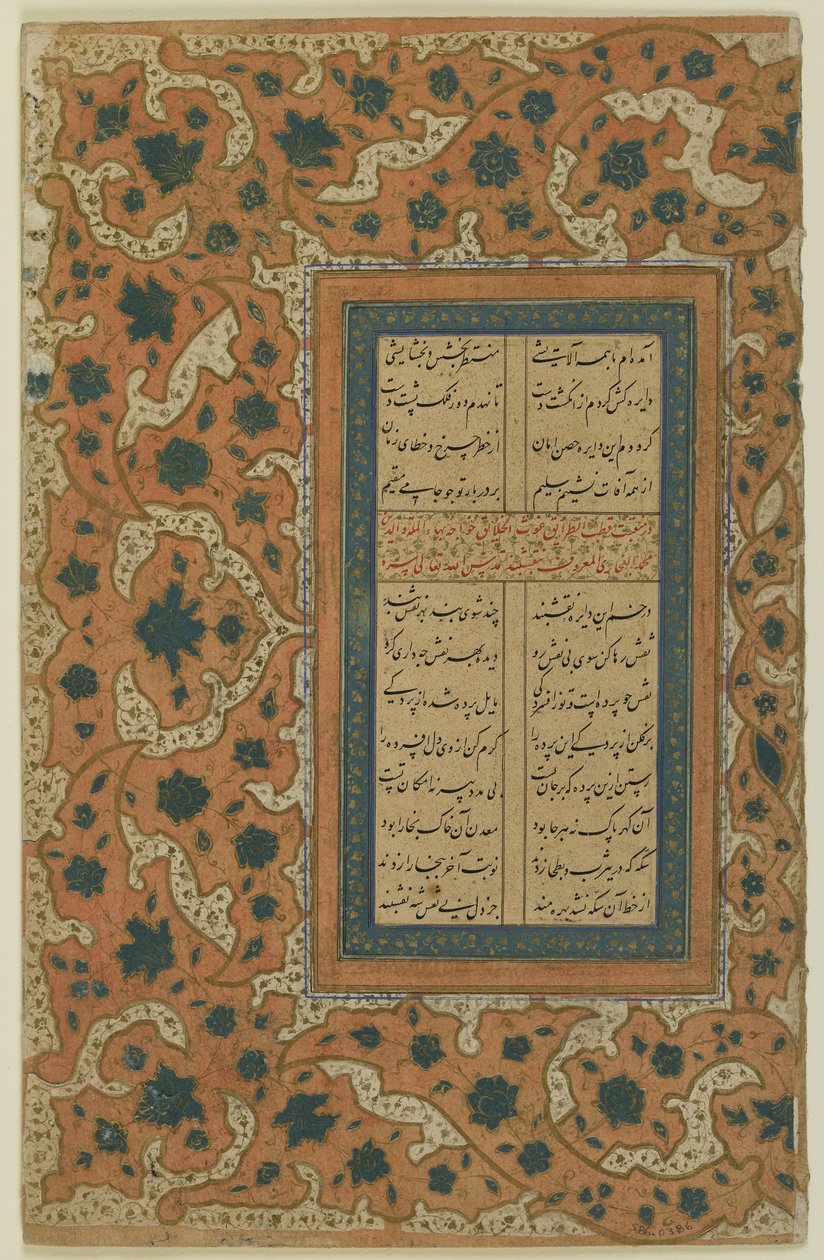 آمده ام با همه آلایشی منتظر بخشش و بخشایشی
دایره کش کردم از انگشت دست تا نهدم دور فلک پشت دست
این دایره حصن امان از خطر چرخ و خطای زمان
از همه آفات نشینم سلیم بر در بار تو چو جامی مقیم
در منقبت قطب الطرائق غوث الخلائق خواجه بهاء الملة والدین
محمد البخاری المعروف بنقشبند قدس الله تعالی سره
در خم این دایره نقشبند چند شوی بند بهر نقش چند
نقش رها کن سوی بی نقش رو دیده بهر نقش چه داری گرو
نقش چو پرده است و تو زافسردگی مایل پرده شده از پردگی
برفکن از پردگی این پرده را گرم کن از وی دل افسرده را
رستن ازین پرده که بر جان تست بی مدد پیر نه امکان تست
آن گهر پاک نه هر جا بود معدن آن خاک بخارا بود
سکه که در یثرب و بطحا زدند نوبت آخر ببخارا زدند
از خط آن سکه نشد بهره مند جز دل بی نقش شه نقشبند
S86.0386